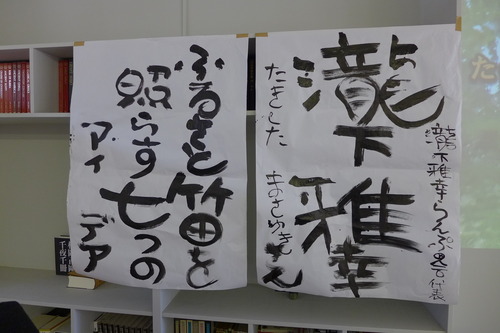 瀧下雅幸らんぷの会代表
瀧下雅幸
たきした まさゆきさん
ふるさと竹田を
照らす七つの
アイデア
千夜千冊
た